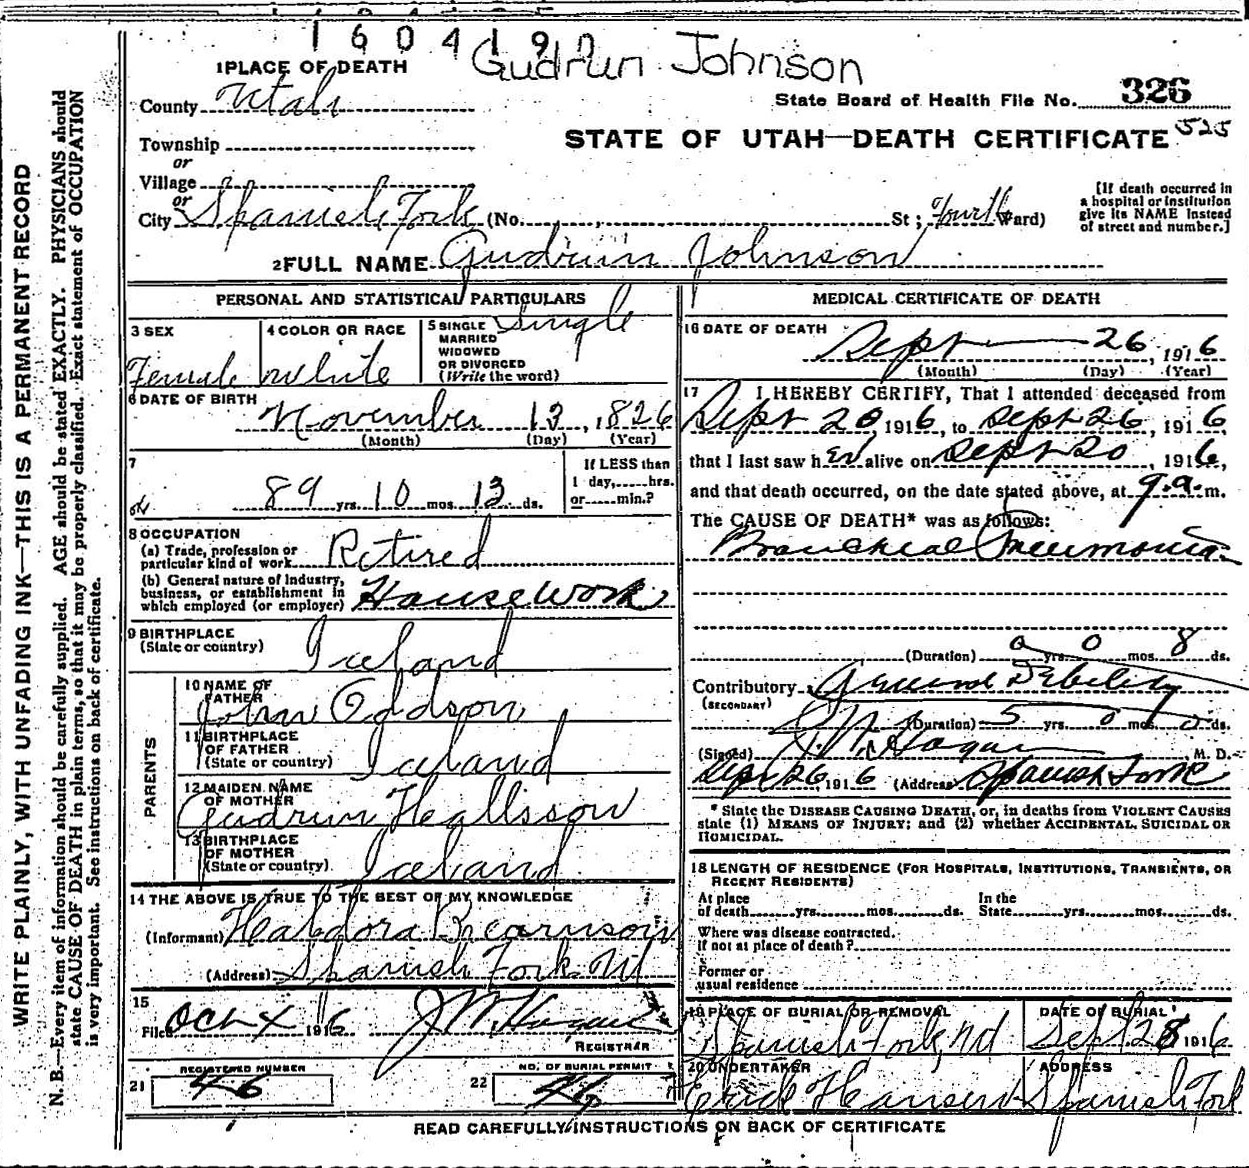 160419
Gudrun Johnson
1 PLACE OF DEATH
County Utah
State Board of Health File No. 326
525
STATE OF UTAH—DEATH CERTIFICATE
Township
or
Village
or
City Spanish Fork (No. St; Fourth Ward)
[If death occurred in a hospital or institution give its NAME instead of street and number.]
2 FULL NAME Gudrun Johnson
PERSONAL AND STATISTICAL PARTICULARS
3 SEX
Female
4 COLOR OR RACE
White
5 SINGLE
MARRIED
WIDOWED
OR DIVORCED
(Write the word)
Single
6 DATE OF BIRTH
November 13, 1826
(Month) (Day) (Year)
7
89 yrs. 10 mos. 13 ds.
If LESS than
1 day,.....hrs.
or.....min.?
8 OCCUPATION
(a) Trade, profession or
particular kind of work Retired
(b) General nature of Industry,
business, or establishment in
which employed (or employer) Housework
9 BIRTHPLACE
(State or country) Iceland
PARENTS
10 NAME OF
FATHER
John Oddson
11 BIRTHPLACE
OF FATHER
(State or country) Iceland
12 MAIDEN NAME
OF MOTHER
Gudrun Hallsson
13 BIRTHPLACE
OF MOTHER
(State or country) Iceland
14 THE ABOVE IS TRUE TO THE BEST OF MY KNOWLEDGE
(Informant) Haldora Bearnson
(Address) Spanish Fork Ut
15
Filed Oct 4 1916 J. W. Hagan
REGISTRAR
21 REGISTERED NUMBER
46
22 NO. OF BURIAL PERMIT
MEDICAL CERTIFICATE OF DEATH
16 DATE OF DEATH
Sept 26, 1916
(Month) (Day) (Year)
17 I HEREBY CERTIFY, That I attended deceased from
Sept 20, 1916, to Sept 26, 1916,
that I last saw her alive on Sept 20, 1916,
and that death occurred, on the date stated above, at 9.a.m.
The CAUSE OF DEATH* was as follows:
Bronchial Pneumonia
(Duration) 0 yrs. 0 mos. 8 ds.
Contributory General Debility
(SECONDARY)
(Duration) 5 yrs. 0 mos. 0 ds.
(Signed) J. W. Hagan M. D.
Sept 26, 1916 (Address) Spanish Fork
* State the DISEASE CAUSING DEATH, or, in deaths from VIOLENT CAUSES
state (1) MEANS OF INJURY; and (2) whether ACCIDENTAL, SUICIDAL OR
HOMICIDAL.
18 LENGTH OF RESIDENCE (FOR HOSPITALS, INSTITUTIONS, TRANSIENTS, OR
RECENT RESIDENTS)
At place
of death.......yrs.......mos.......ds.
In the
State.......yrs.......mos.......ds.
Where was disease contracted.
if not at place of death?
Former or
usual residence
19 PLACE OF BURIAL OR REMOVAL
Spanish Fork, Ut
DATE OF BURIAL
Sept 28 1916
20 UNDERTAKER
Erick Hansen
ADDRESS
Spanish Fork
READ CAREFULLY INSTRUCTIONS ON BACK OF CERTIFICATE
WRITE PLAINLY, WITH UNFADING INK—THIS IS A PERMANENT RECORD
N. B.—Every item of information should be carefully supplied. AGE should be stated EXACTLY. PHYSICIANS should
state CAUSE OF DEATH in plain terms, so that it may be properly classified. Exact statement of OCCUPATION
is very important. See instructions on back of certificate.